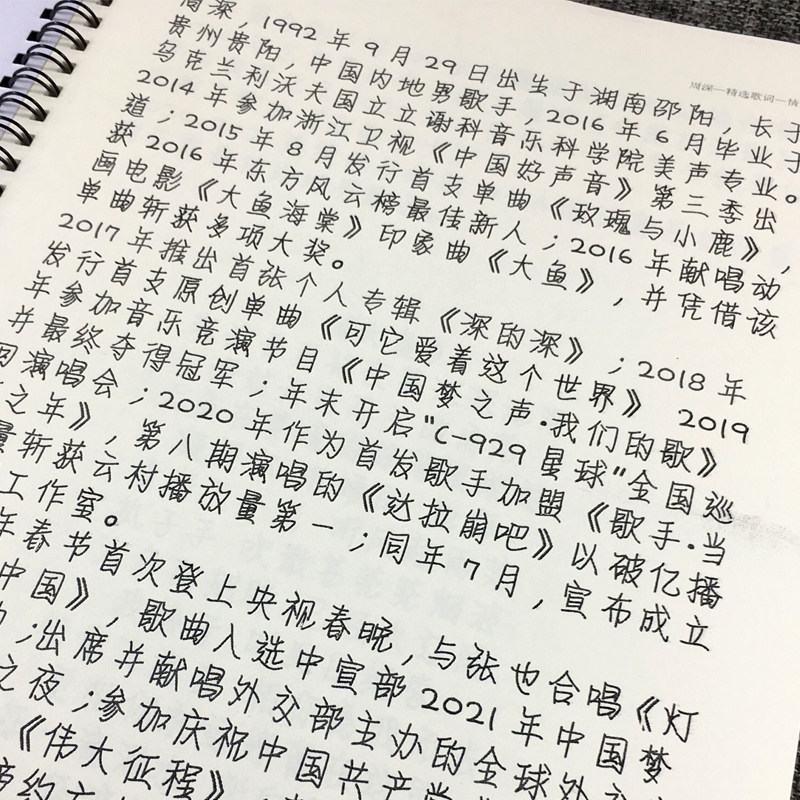 周深—精选歌词—情
周深，1992年9月29日出生于湖南邵阳，长于
贵州贵阳，中国内地男歌手，2016年6月毕业于
乌克兰利沃夫国立立谢科音乐科学院美声专业。
2014年参加浙江卫视《中国好声音》第三季出
道；2015年8月发行首支单曲《玫瑰与小鹿》，
获2016年东方风云榜最佳新人；2016年献唱动
画电影《大鱼海棠》印象曲《大鱼》，并凭借该
单曲斩获多项大奖。
2017年推出首张个人专辑《深的深》；2018年
发行首支原创单曲《可它爱着这个世界》 2019
年参加音乐竞演节目《中国梦之声·我们的歌》
并最终夺得冠军；年末开启"C-929星球"全国巡
回演唱会；2020年作为首发歌手加盟《歌手·当
之年》，第八期演唱的《达拉崩吧》以破亿播
量斩获云村播放量第一；同年7月，宣布成立
工作室。
年春节首次登上央视春晚，与张也合唱《灯
中国》，歌曲入选中宣部2021年中国梦
；出席并献唱外交部主办的全球外
之夜；参加庆祝中国共产党
《伟大征程》